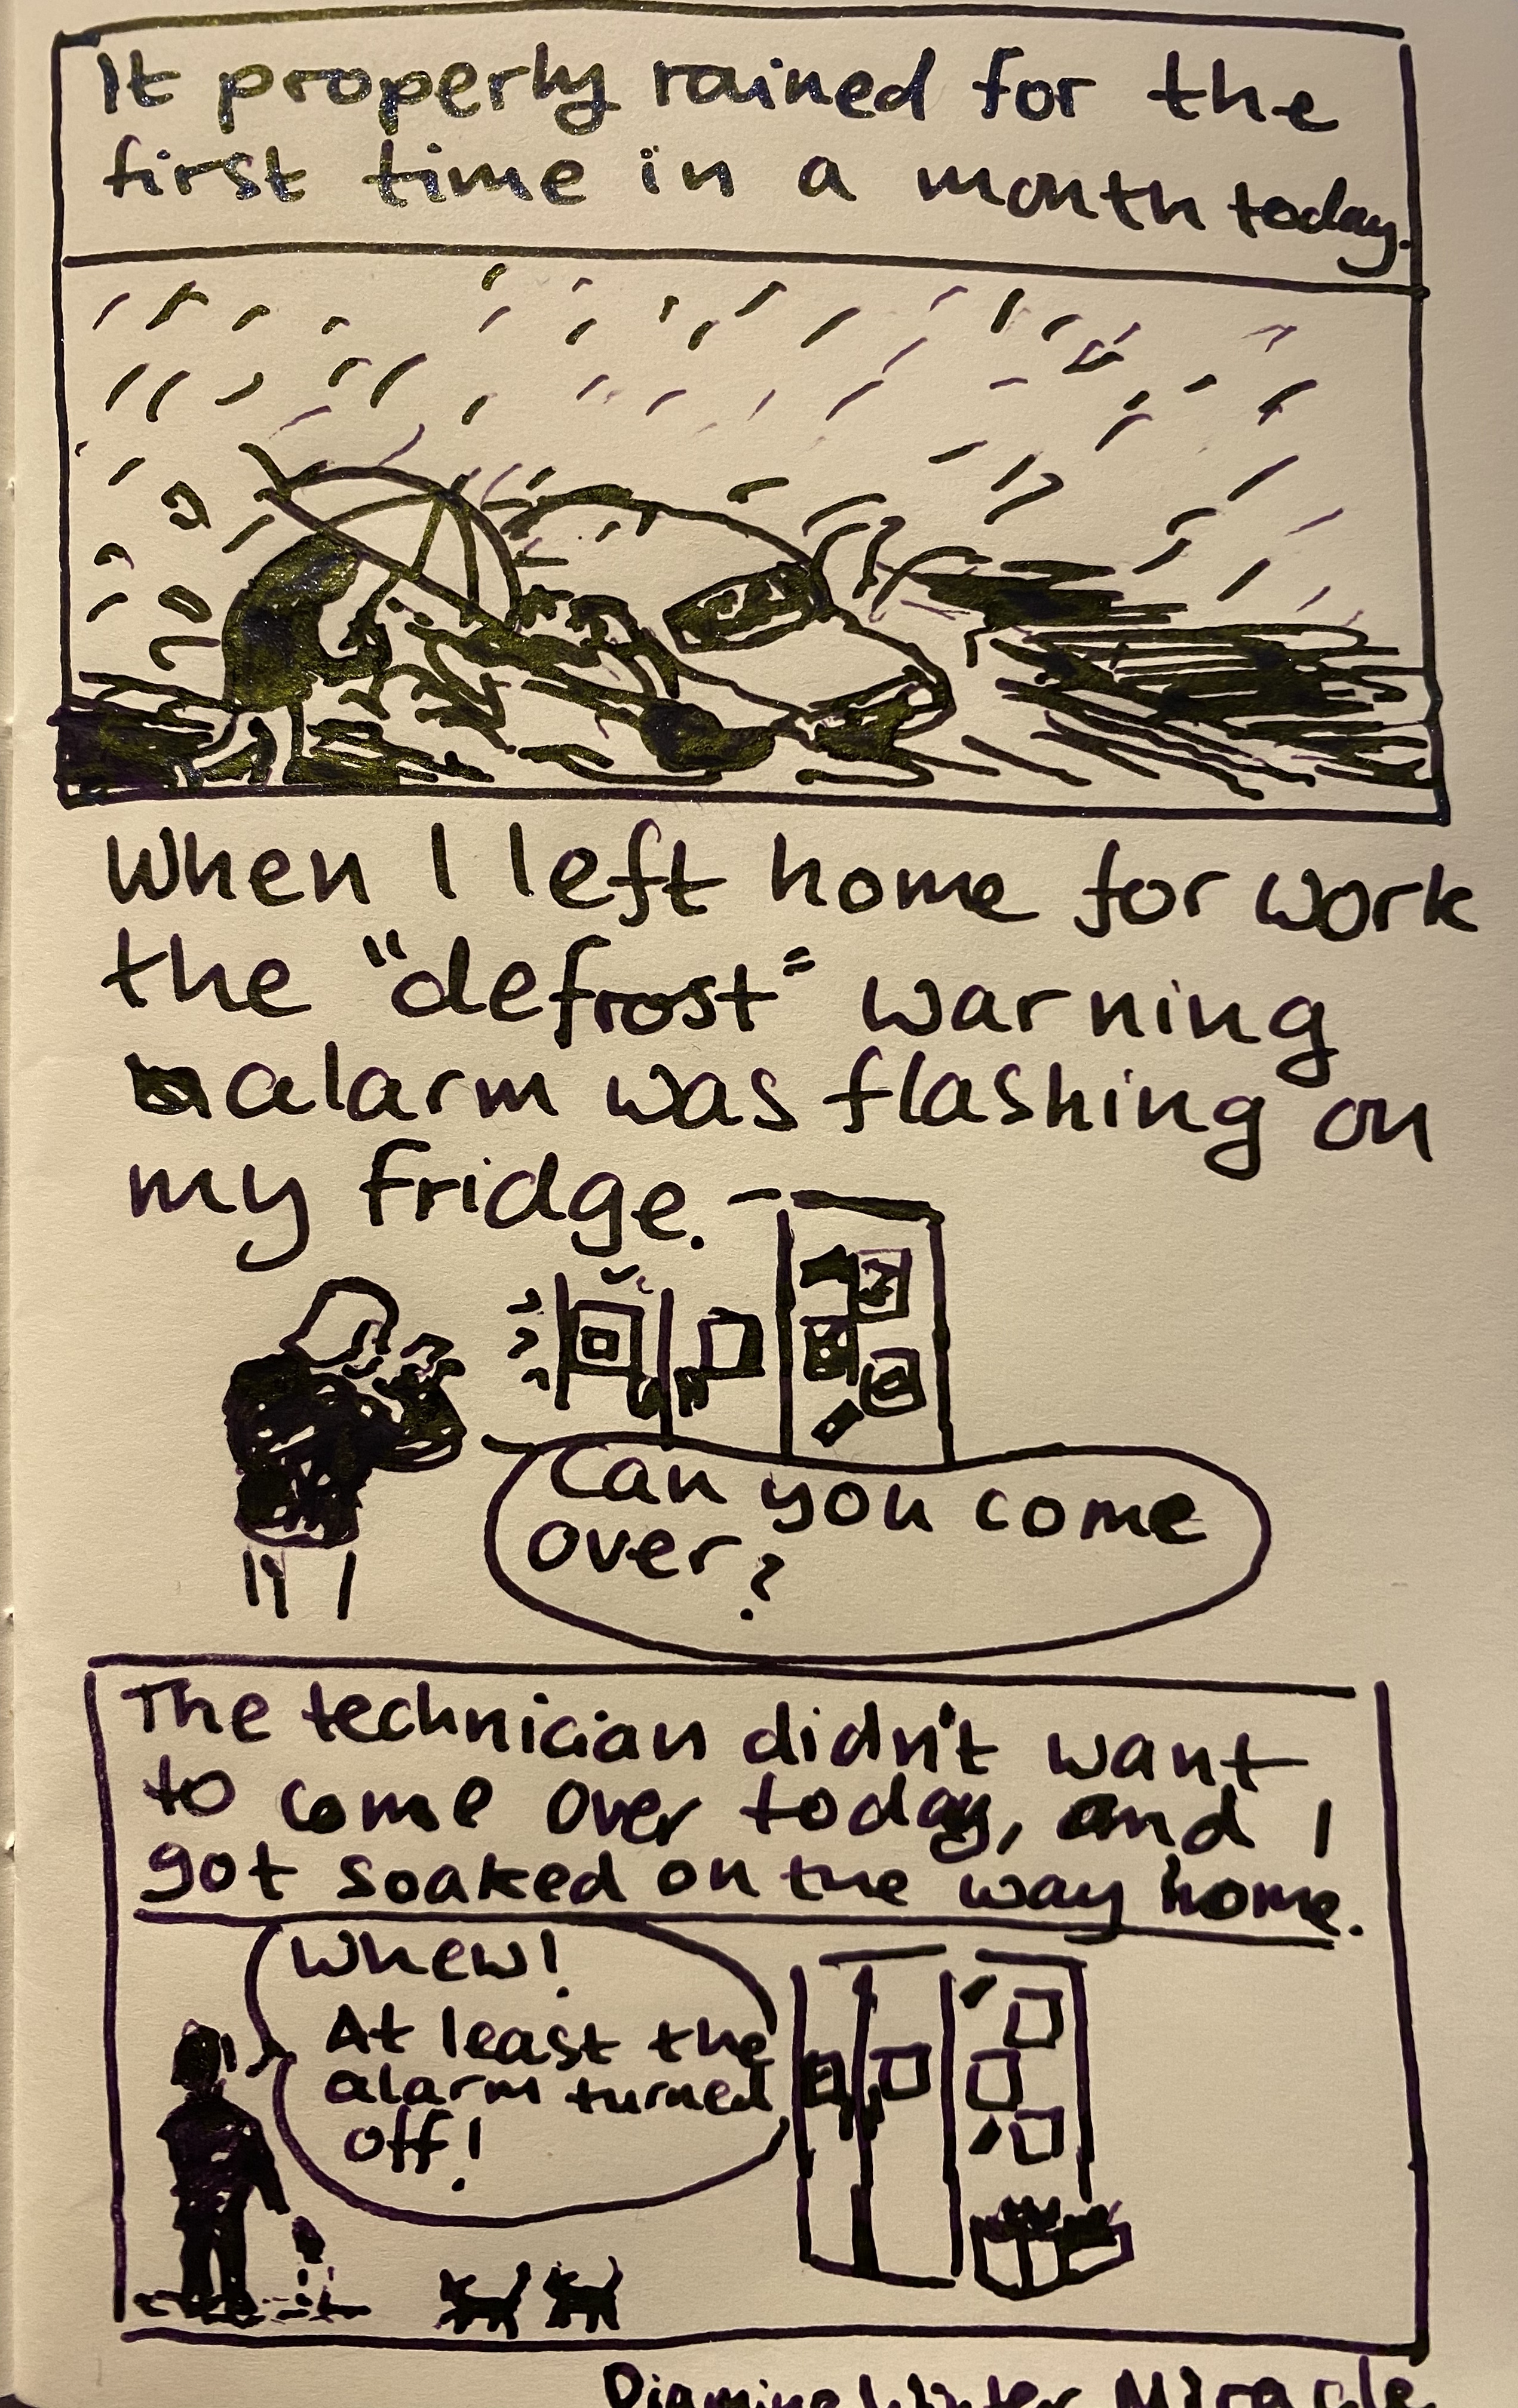 It properly rained for the
first time in a month today.
When I left home for work
the "defrost" warning
alarm was flashing on
my fridge.
Can you come
over?
The technician didn't want
to come over today, and I
got soaked on the way home.
Whew!
At least the
alarm turned
off!
Diamine Winter Miracle